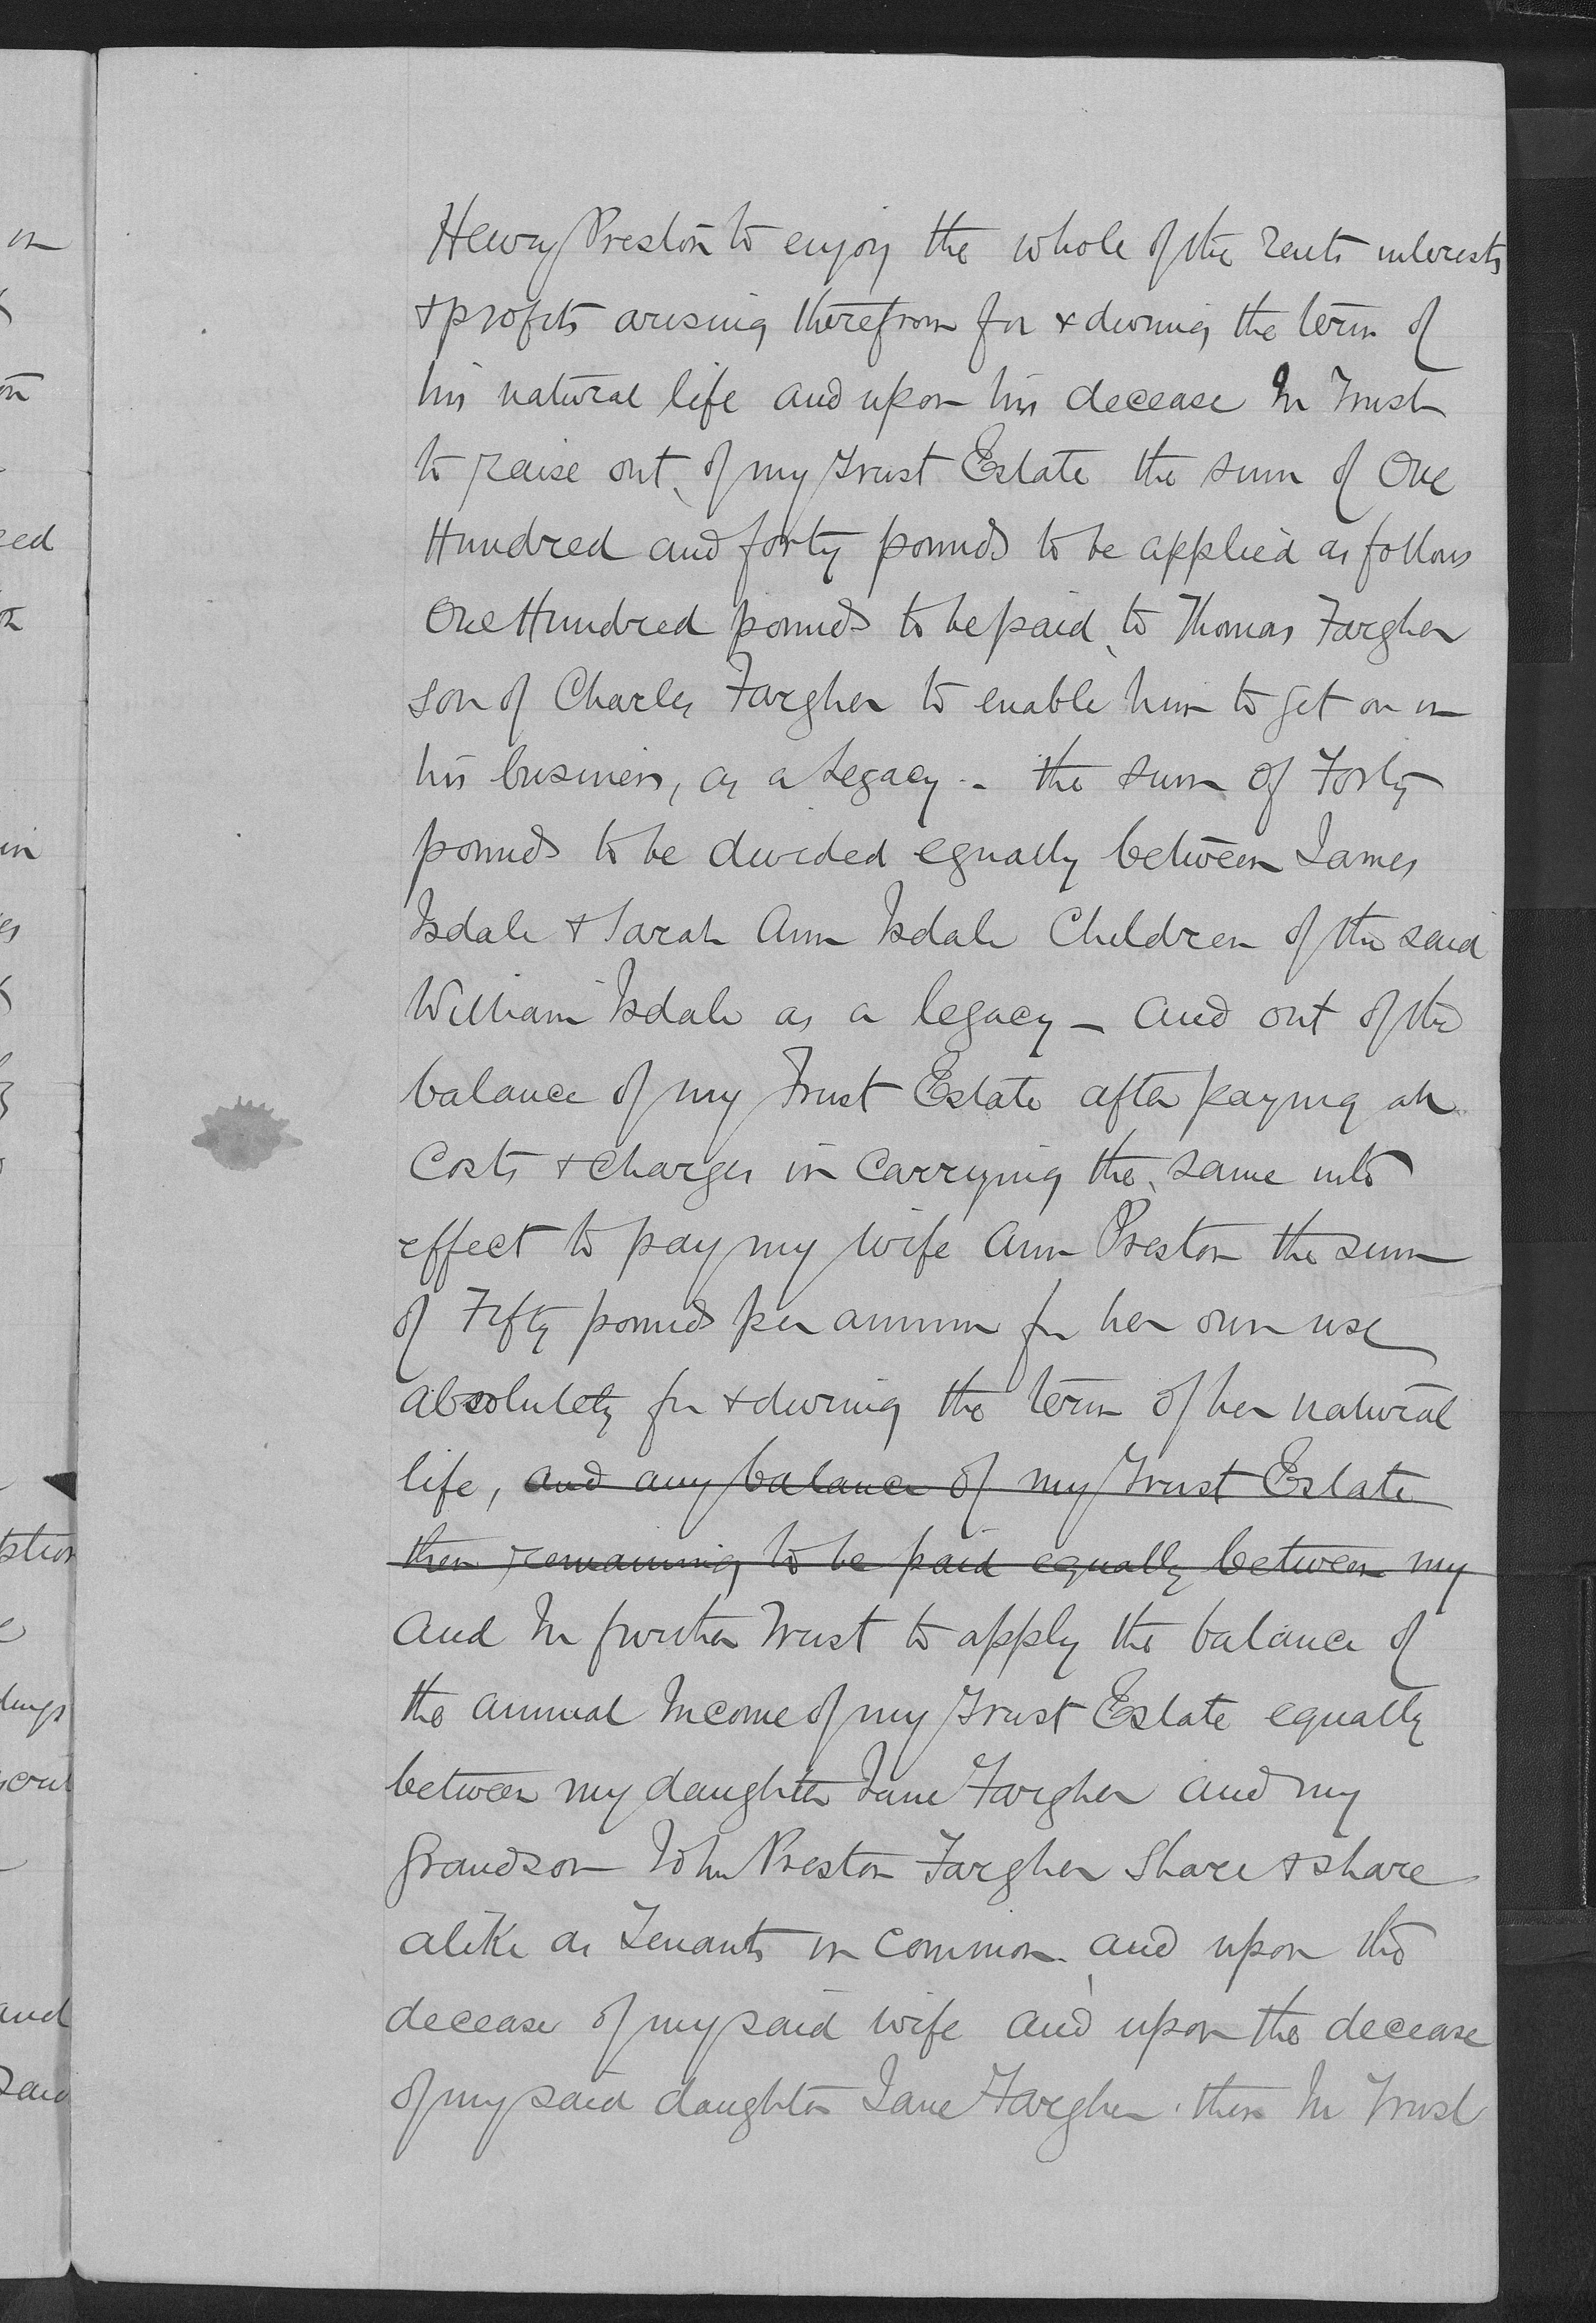 Henry Preston to enjoy the whole of the rents interests
& profits arising therefrom for & during the term of
his natural life and upon his decease In Trust
to raise out of my Trust Estate the sum of One
Hundred and forty pounds to be applied as follows
One Hundred pounds to be paid to Thomas Fargher
son of Charles Fargher to enable him to get on in
his business, as a Legacy - the sum of Forty
pounds to be divided equally between James
Isdale & Sarah Ann Isdale Children of the said
William Isdale as a legacy - and out of the
balance of my Trust Estate after paying all
Costs & charges in carrying the same into
effect to pay my wife Ann Preston the sum
of Fifty pounds per annum for her own use
absolutely for & during the term of her natural
life, and any balance of my Trust Estate
then remaining to be paid equally between my
and In further Trust to apply the balance of
the annual Income of my Trust Estate equally
between my daughter Jane Fargher and my
Grandson John Preston Fargher Share & share
alike as Tenants in common and upon the
decease of my said wife and upon the decease
of my said daughter Jane Fargher then In Trust